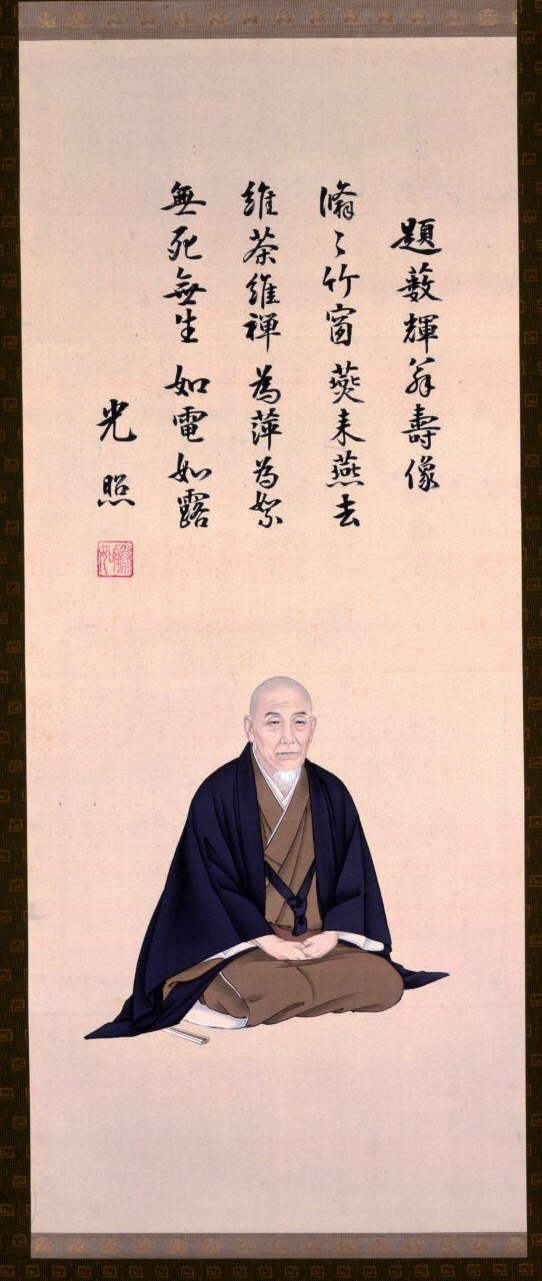 題薮輝翁壽像
翛々竹窗 燕来燕去
維茶維禅 為萍為絮
無死無生 如電如露
光照